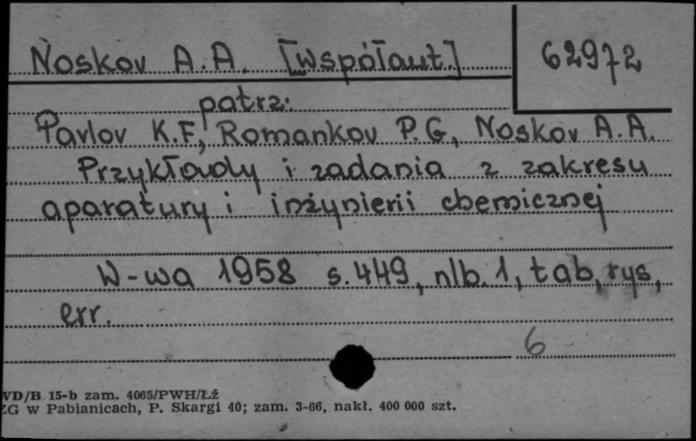 Noskov A.A. [współaut.]
62972
patrz:
Pavlov K.F., Romankov P.G., Noskov A.A.
Przykłady i zadania z zakresu
aparatury i inżynierii chemicznej
W-wa 1958 s. 449, nlb. 1, tab, rys,
err.
6
WD/B 15-b zam. 4065/PWH/Łź
ZG w Pabianicach, P. Skargi 40; zam. 3-66, nakł. 400 000 szt.